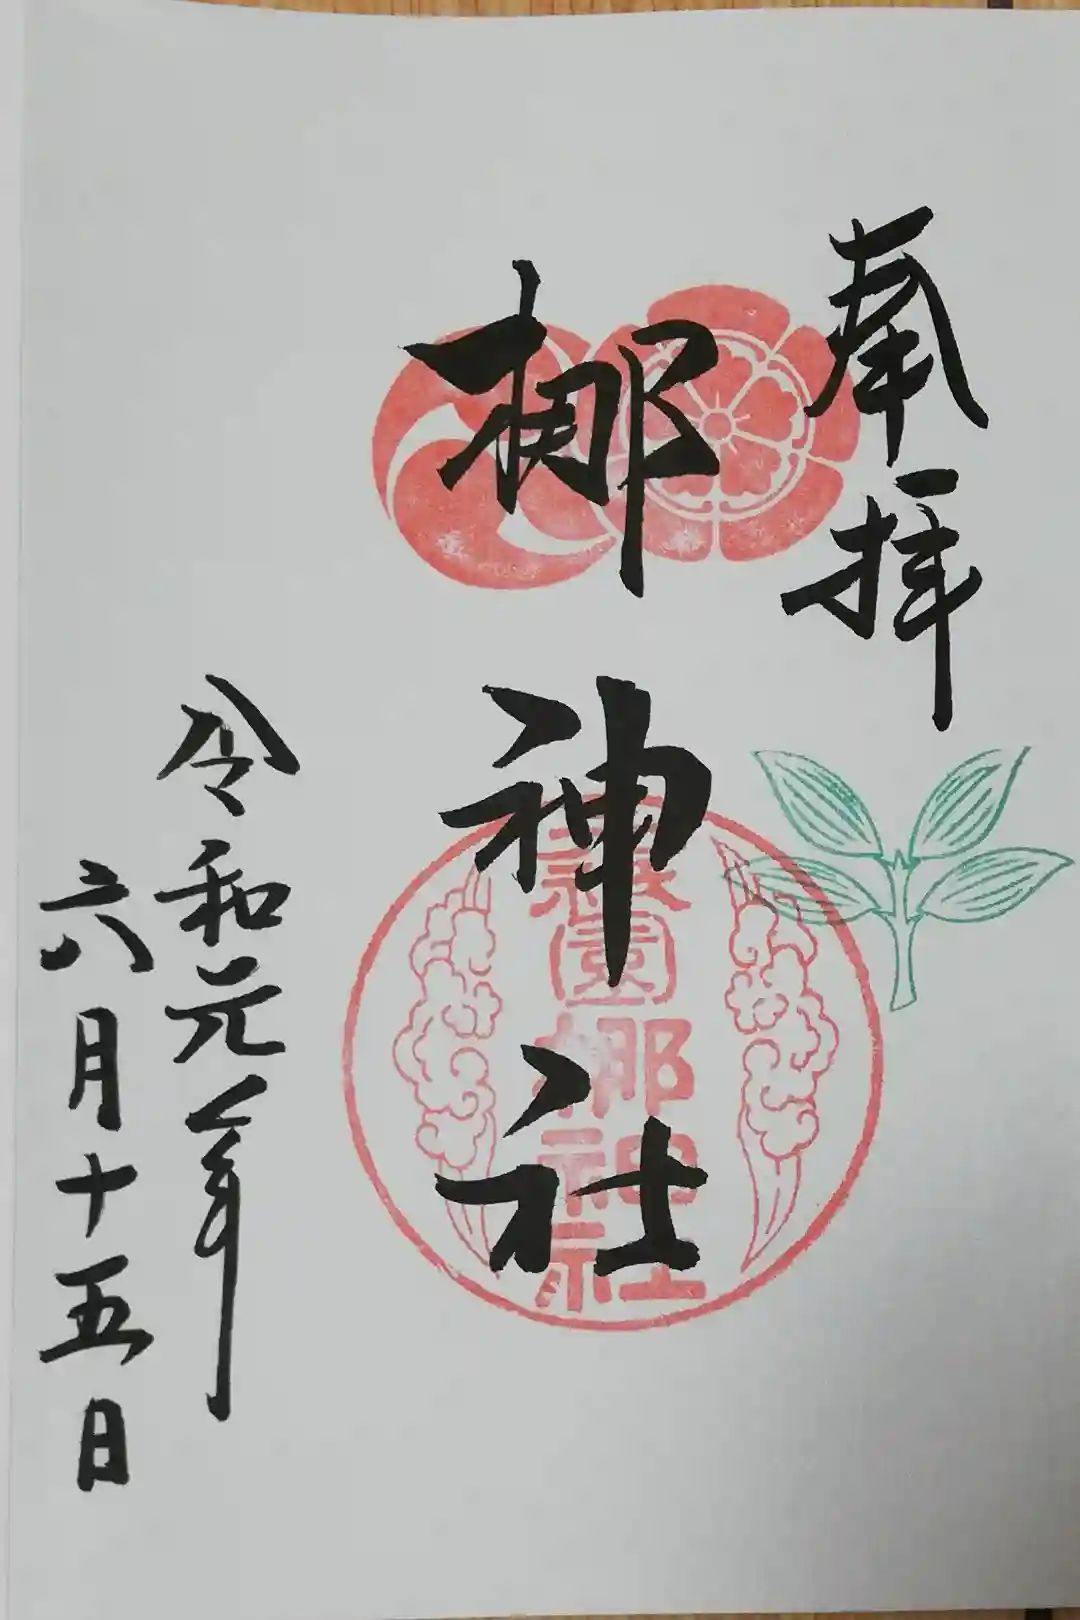 奉拝
梛神社
令和元年
六月十五日
祇園梛神社